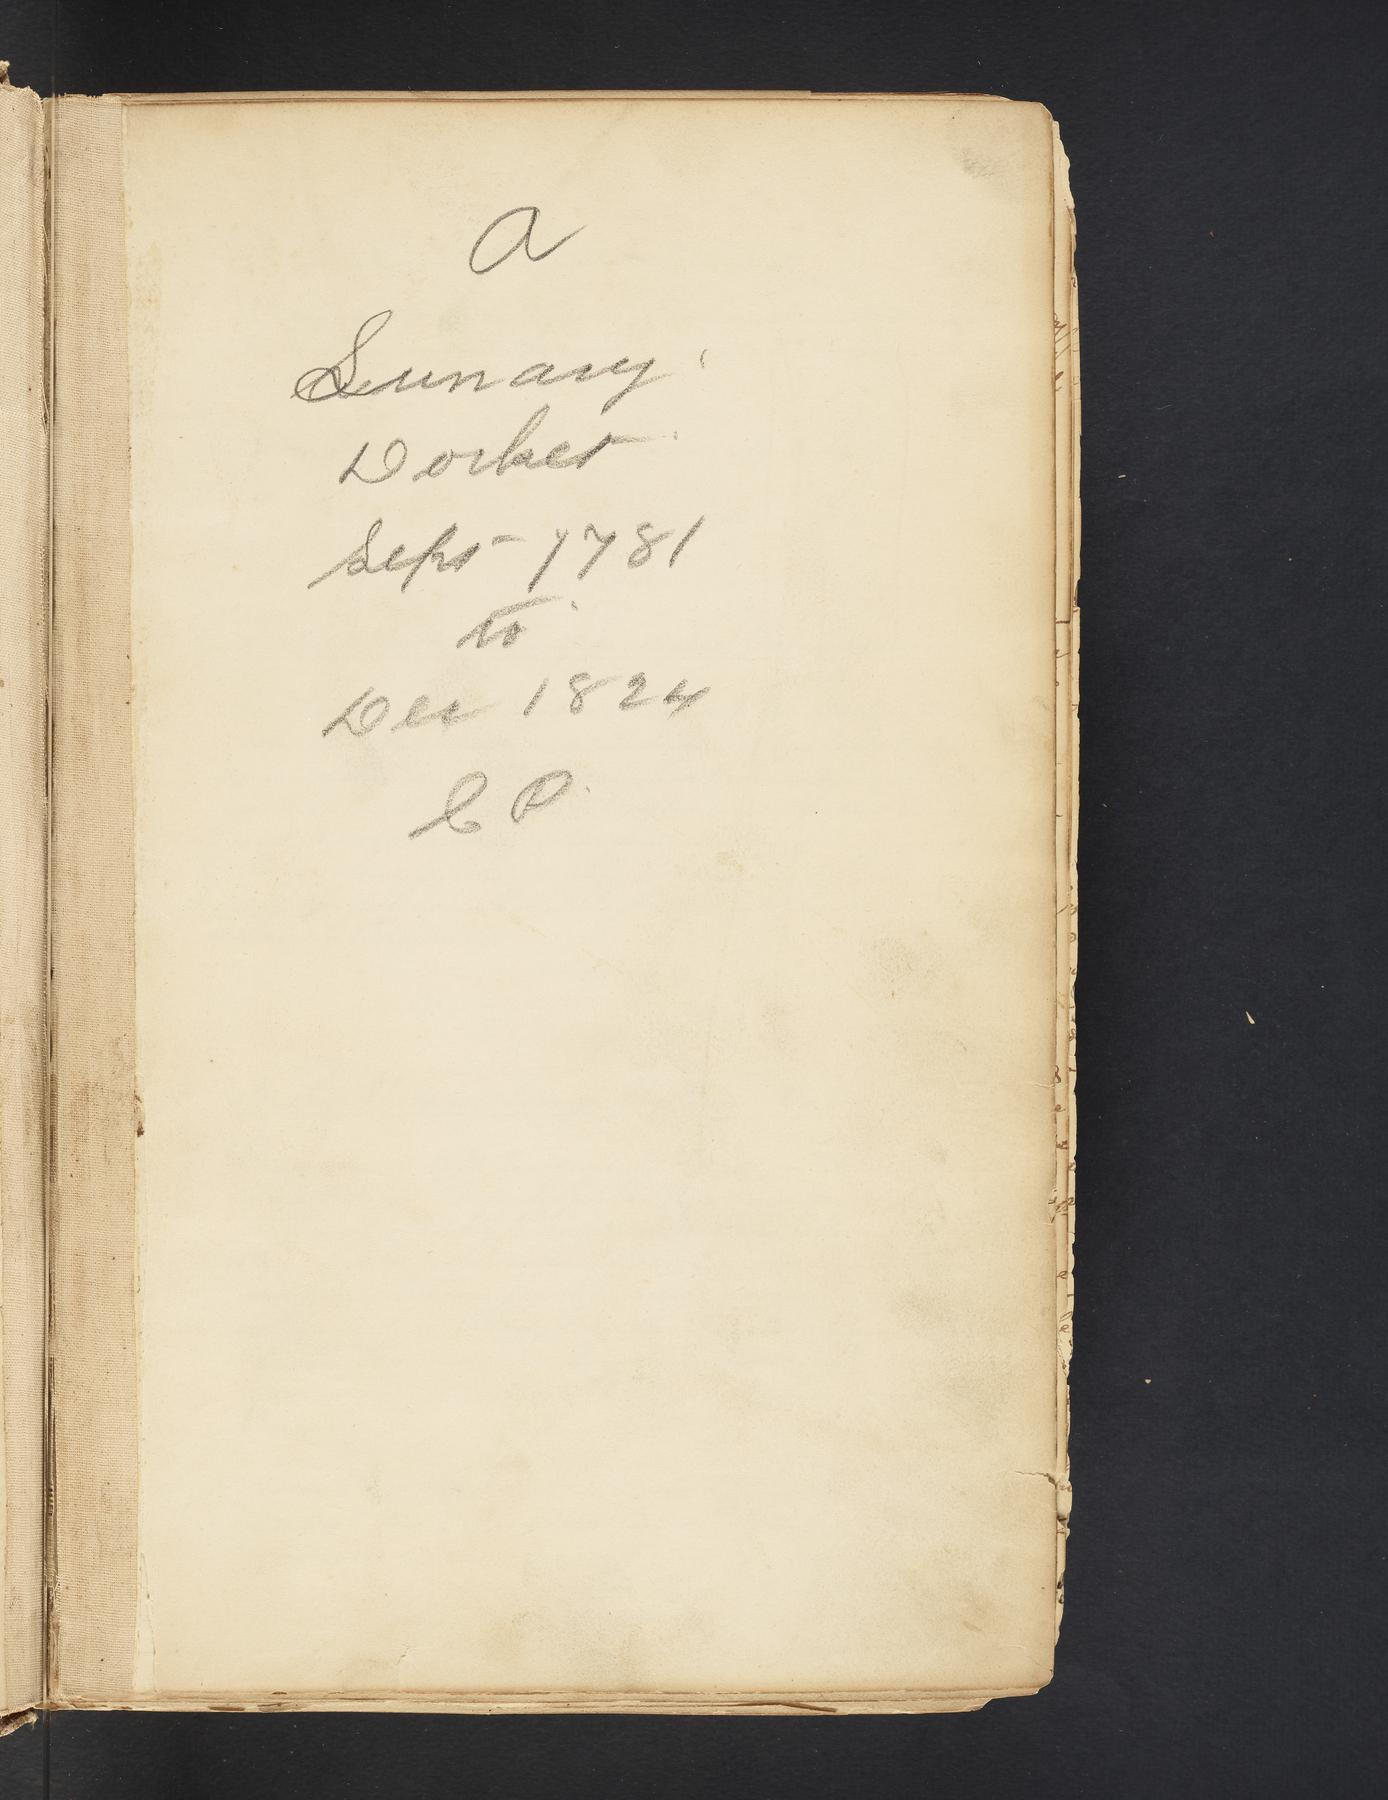 A
Sumary
Docket
Sept 1781
to
Dec 1824
C P.